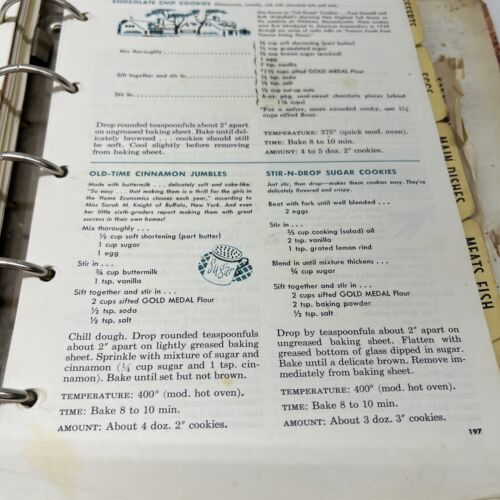 CHOCOLATE CHIP COOKIES
Mix thoroughly
Sift together and stir in
Stir in
⅔ cup soft shortening (part butter)
½ cup granulated sugar
½ cup brown sugar (packed)
1 egg
1 tsp. vanilla
*1½ cups sifted GOLD MEDAL Flour
½ tsp. soda
½ tsp. salt
½ cup cut-up nuts
6-oz. pkg. semi-sweet chocolate pieces (about
1¼ cups)
*For a softer, more rounded cooky, use 1¾
cups sifted flour.
Drop rounded teaspoonfuls about 2" apart
on ungreased baking sheet. Bake until del-
icately browned . . . cookies should still
be soft. Cool slightly before removing
from baking sheet.
TEMPERATURE: 375° (quick mod. oven).
TIME: Bake 8 to 10 min.
AMOUNT: 4 to 5 doz. 2" cookies.
OLD-TIME CINNAMON JUMBLES
Made with buttermilk . . . delicately soft and cake-like.
"So easy . . . that making them is a thrill for the girls in
the Home Economics classes each year," according to
Miss Sarah M. Knight of Buffalo, New York. And even
her little sixth-graders report making them with great
success in their own homes!
Mix thoroughly . . .
½ cup soft shortening (part butter)
1 cup sugar
1 egg
Stir in . . .
¾ cup buttermilk
1 tsp. vanilla
Sift together and stir in . . .
2 cups sifted GOLD MEDAL Flour
½ tsp. soda
½ tsp. salt
Sugar
Chill dough. Drop rounded teaspoonfuls
about 2" apart on lightly greased baking
sheet. Sprinkle with mixture of sugar and
cinnamon (¼ cup sugar and 1 tsp. cin-
namon). Bake until set but not brown.
TEMPERATURE: 400° (mod. hot oven).
TIME: Bake 8 to 10 min.
AMOUNT: About 4 doz. 2" cookies.
STIR-N-DROP SUGAR COOKIES
Just stir, then drop—makes them cookies easy. They're
delicately flavored and crisp.
Beat with fork until well blended . . .
2 eggs
Stir in . . .
⅔ cup cooking (salad) oil
2 tsp. vanilla
1 tsp. grated lemon rind
Blend in until mixture thickens . . .
¾ cup sugar
Sift together and stir in . . .
2 cups sifted GOLD MEDAL Flour
2 tsp. baking powder
½ tsp. salt
Drop by teaspoonfuls about 2" apart on
ungreased baking sheet. Flatten with
greased bottom of glass dipped in sugar.
Bake until a delicate brown. Remove im-
mediately from baking sheet.
TEMPERATURE: 400° (mod. hot oven).
TIME: Bake 8 to 10 min.
AMOUNT: About 3 doz. 3" cookies.
197
EGGS
MAIN DISHES
MEATS FISH